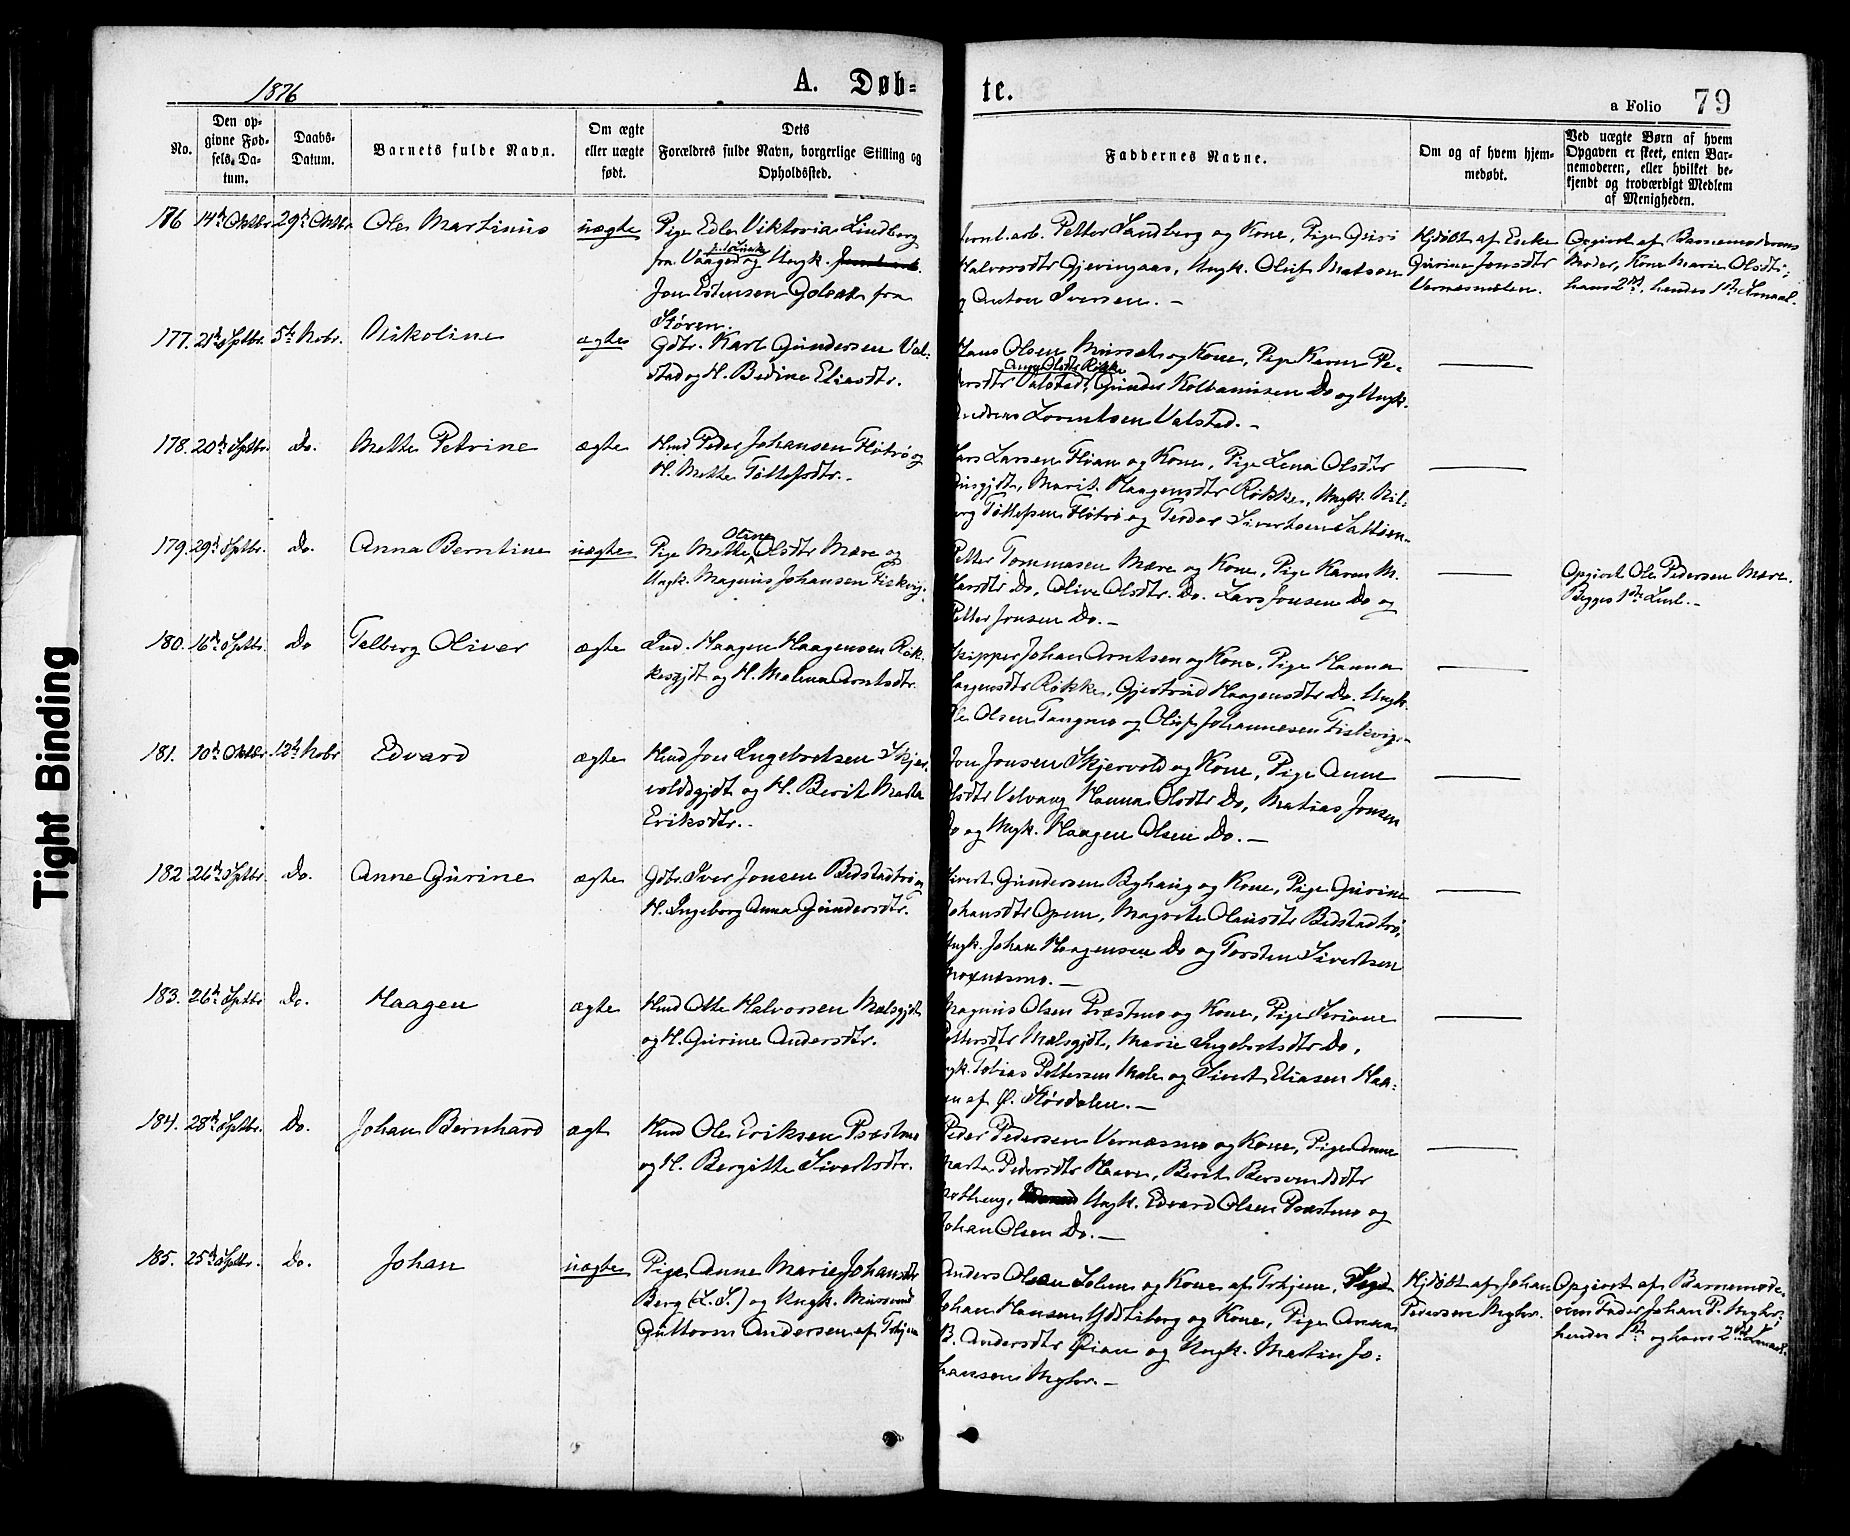 1876
A. Døb-
te.
a Folio 79
No.
Den op-
givne Fød-
sels-Da-
tum.
Daabs-
Datum.
Barnets fulde Navn.
Om ægte
eller uægte
født.
Dets
Forældres fulde Navn, borgerlige Stilling og
Opholdssted.
Faddernes Navne.
Om og af hvem hjem-
medøbt.
Ved uægte Børn af hvem
Opgaven er skeet, enten Bar-
nemoderen, eller hvilket be-
kjendt og troværdigt Medlem
af Menigheden.
176 14de Oktbr. 29de Oktbr. Ole Martinus uægte
Pige Edle Viktoria Lindberg
fra Vaagedog Ungk.
Jon Estensen fra
Støren.
arb. Petter Sandberg og Kone, Pige Guri
Halvorsdtr Gjevingaas, Ungk. Oluf Matson
og Anton Iversen. —
Hjdøbt af Enke
Gurine Jonsdtr
Vernesmoen.
Opgivet af Barnemoderens
Moder, Kone Marie Olsdtr;
hans 2det, hendes 1ste Lmaal.
177. 21de Sptbr. 5te Nobr. Nikoline ægte
Gdbr. Karl Gundersen Val-
stad og H. Bedine Eliasdtr.
Hans Olsen Murset og Kone, Pige Karen Pe-
Anne Olsdtr Røkke
dersdtr Valstad, Gunder Kolbanusen Do og Ungk.
Lorntsen Valsted. —
178. 20de Sptbr. Do. Mette Petrine ægte
Hmd Peder Johansen Flotrø og
H. Mette Tollefsdtr. -
Lars Larsen Hian og Kone, Pige Lena Olsdtr
Marit Haagensdtr Røkke, Ungk. Nil-
Tollefsen Flotrø og Teodor Sivertsen
179. 29de Sptbr. Do. Anna Berntine uægte
Oline
Pige Mette Olsdtr Mære og
Ungk. Magnus Johansen Fiskvig.
Petter Tommasen Mære og Kone, Pige Karen M.
Larsdtr Do, Olive Olsdtr. Do. Lars Jonsen Do og
Petter Jonsen Do. —
Opgivet Ole Pedersen Mære.
Begges 1ste Leml. —
180. 16de Sptbr. Do Talberg Oliver ægte
Ind. Haagen Haagensen Røk-
kesgjdt og H. Malena Arntsdtr.
Skipper Johan Arntsen og Kone, Pige Hanna
Haagensdtr Røkke, Gjertrud Haagensdtr Do. Ungk.
Ole Olsen Tangmo og Oluf Johannesen Fiskvig. —
181. 10de Oktbr. 12te Nobr. Edvard ægte
Hmd Jon Ingebretsen Skjer-
voldsgjdt og H. Berit Marta
Eriksdtr. -
Jon Jonsen Skjervold og Kone, Pige Anne
Olsdtr Velvang Hanna Olsdtr Do, Matias Jonsen
Do og Ungk. Haagen Olsen Do. —
182 26de Sptbr. Do. Anne Gurine ægte
Gdbr. Iver Jonsen Bedstadtrø og
H. Ingeborg Anna Gundersdtr.
Sivert Gundersen Byhaug og Kone, Pige Gurine
Johansdtr Opem, Magrete Olausdtr Bedstadtrø,
Ungk. Johan Haagensen Do og Torsten Sivertsen
Moxnesmo. —
183. 26de Sptbr Do. Haagen ægte
Hmd Otte Halvorsen Mælsgjdt
og H. Gurine Andersdtr.
Magnus Olsen Præstmo og Kone, Pige Seriane
Pettersdtr Mælsgjdt, Marie Ingebretsdtr Do,
Ungk. Tobias Pettersen Mæle og Sivert Eliasen Haa-
gen af Ø. Størdalen. —
184. 28de Sptbr. Do. Johan Bernhard ægt
Hmd Ole Eriksen Præstmo
og H. Bergitte Sivertsdtr.
Peder Pedersen Vernæsmo og Kone, Pige Anne
Marta Pedersdtr Haave, Berit Bersvendsdtr
Ungk. Edvard Olsen Præstmo og
Johan Olsen Do. —
185. 25de Sptbr. Do. Johan uægte
Pige Anne Marie Johansdtr
Berg (L.S.) og Ungk. Mursvend
Guttorm Andersen af Trhjem
Anders Olsen Solem og Kone af Trhjem,
Johan Hansen og Kone, Pige Anna
B. Andersdtr Øian og Ungk. Martin Jo-
hansen Myhr. —
Hjdøbt af Johan
Pedersen Myhr.
Opgivet af Barnemode-
rens Fader Johan P. Myhr;
hendes 1ste og hans 2det Lmaal.
Tight Binding